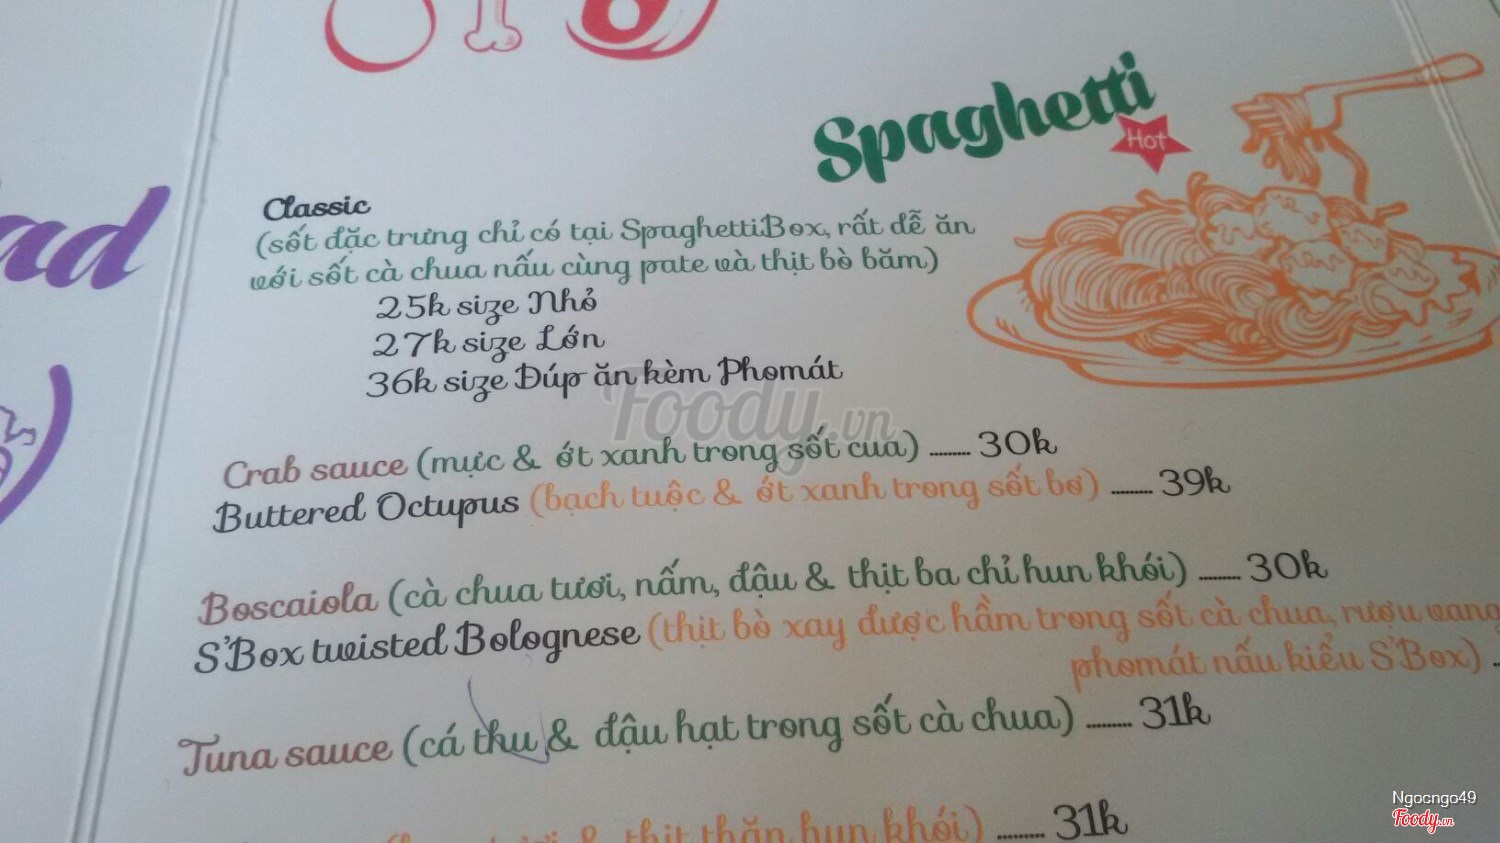 ad
Spaghetti
Hot
Classic
(sốt đặc trưng chỉ có tại SpaghettiBox, rất dễ ăn
với sốt cà chua nấu cùng pate và thịt bò băm)
25k size Nhỏ
27k size Lớn
36k size Đúp ăn kèm Phomát
Foody.vn
Crab sauce (mực & ớt xanh trong sốt cua) ........ 30k
Buttered Octupus (bạch tuộc & ớt xanh trong sốt bơ) ........ 39k
Boscaiola (cà chua tươi, nấm, đậu & thịt ba chỉ hun khói) ........ 30k
S'Box twisted Bolognese (thịt bò xay được hầm trong sốt cà chua, rượu vang
phomát nấu kiểu S'Box)
Tuna sauce (cá thu & đậu hạt trong sốt cà chua) ......... 31k
& thịt thăn hun khói) ......... 31k
Ngocngo49
Foody.vn